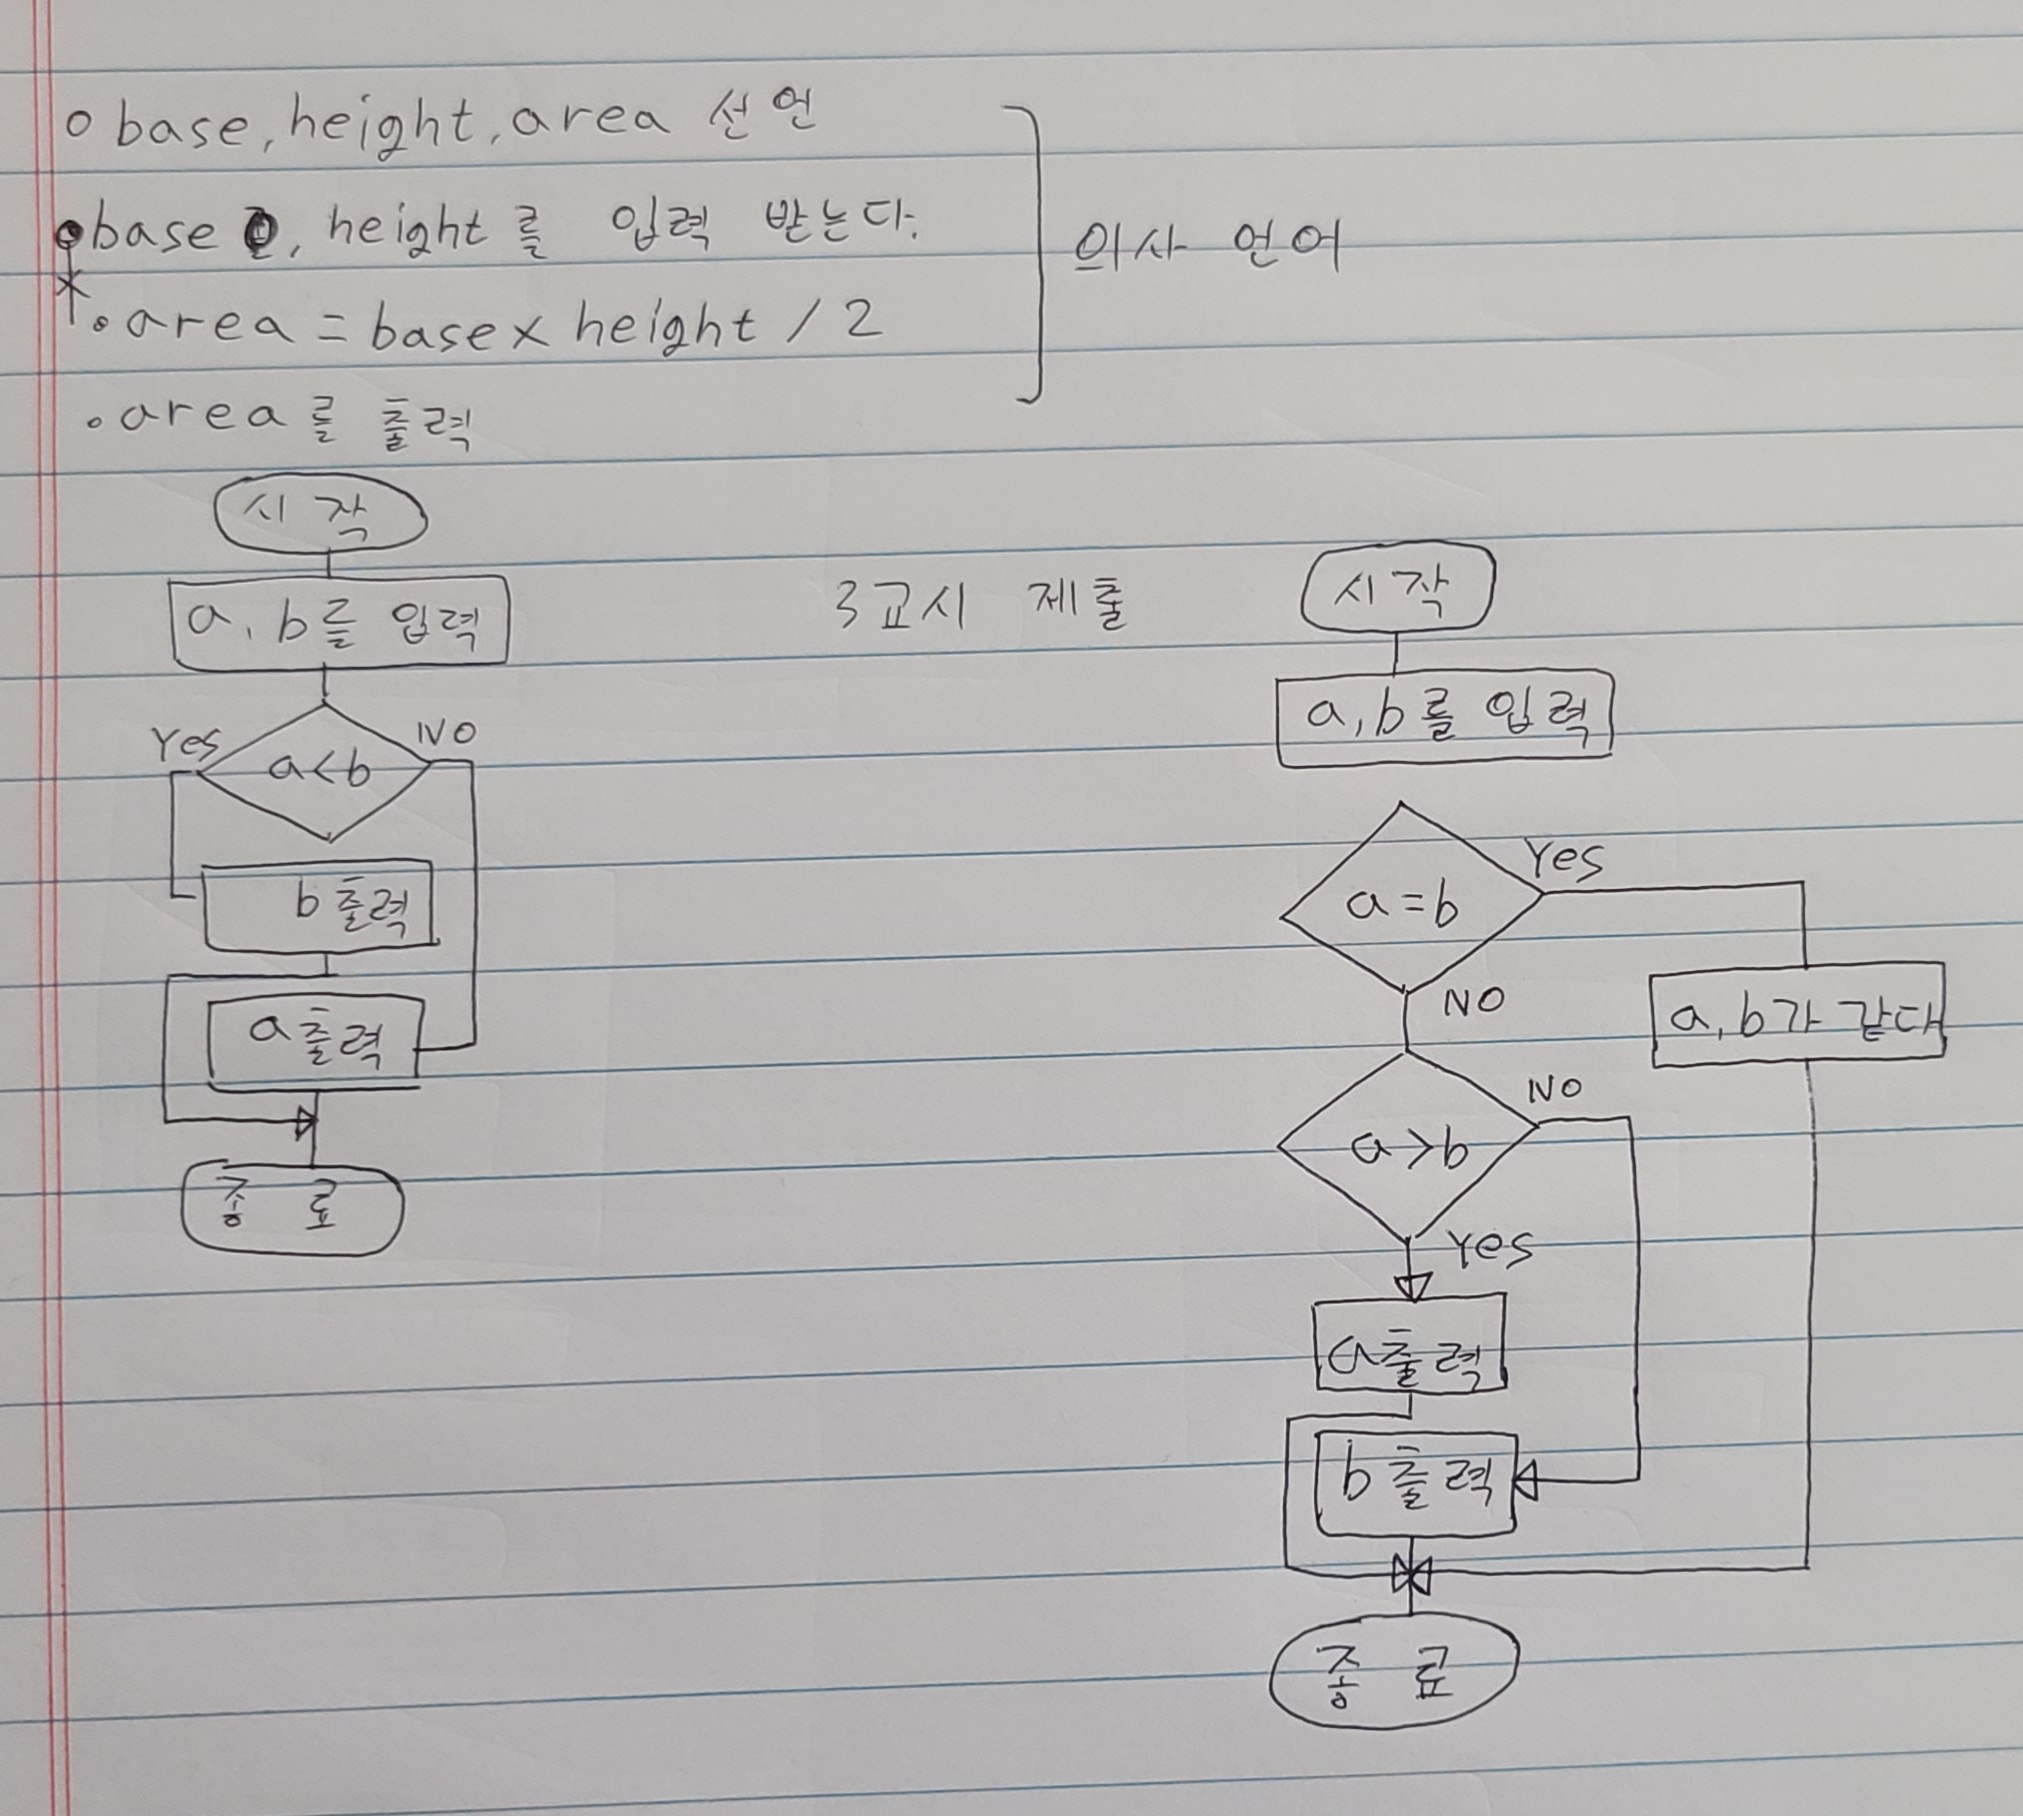 ○ base, height, area 선언
○ base, height를 입력 받는다.
○ area = base x height / 2
○ area를 출력
의사 언어
시작
a, b를 입력
Yes
NO
a<b
b출력
a출력
종료
3교시 제출
시작
a, b를 입력
a=b
Yes
NO
a, b가 같다
a>b
NO
Yes
a출력
b출력
종료